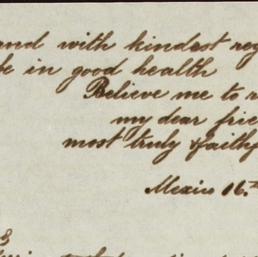 and with kindest reg
be in good health
Believe me to r
my dear frie
most truly & faithf
Mexico 16.th